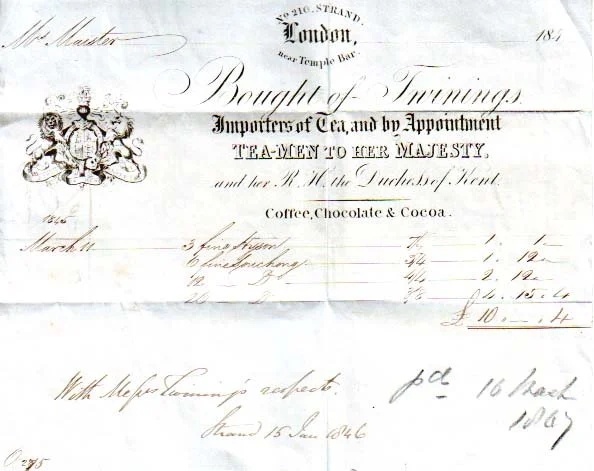 No. 216, STRAND.
London,
near Temple Bar.
184
Mrs Maister
Bought of Twinings.
Importers of Tea, and by Appointment
TEA-MEN TO HER MAJESTY,
and her R. H. the Duchess of Kent.
Coffee, Chocolate & Cocoa.
1845
March 11 3 fine Hyson 7/ 1 . 1 —
6 fine Souchong 1 . 12 —
12 D 2 . 12 —
4 . 15 . 4
£ 10 — . 4
With Messrs Twining's respects.
pd 16 March
1867
Strand 15 Jan 1846